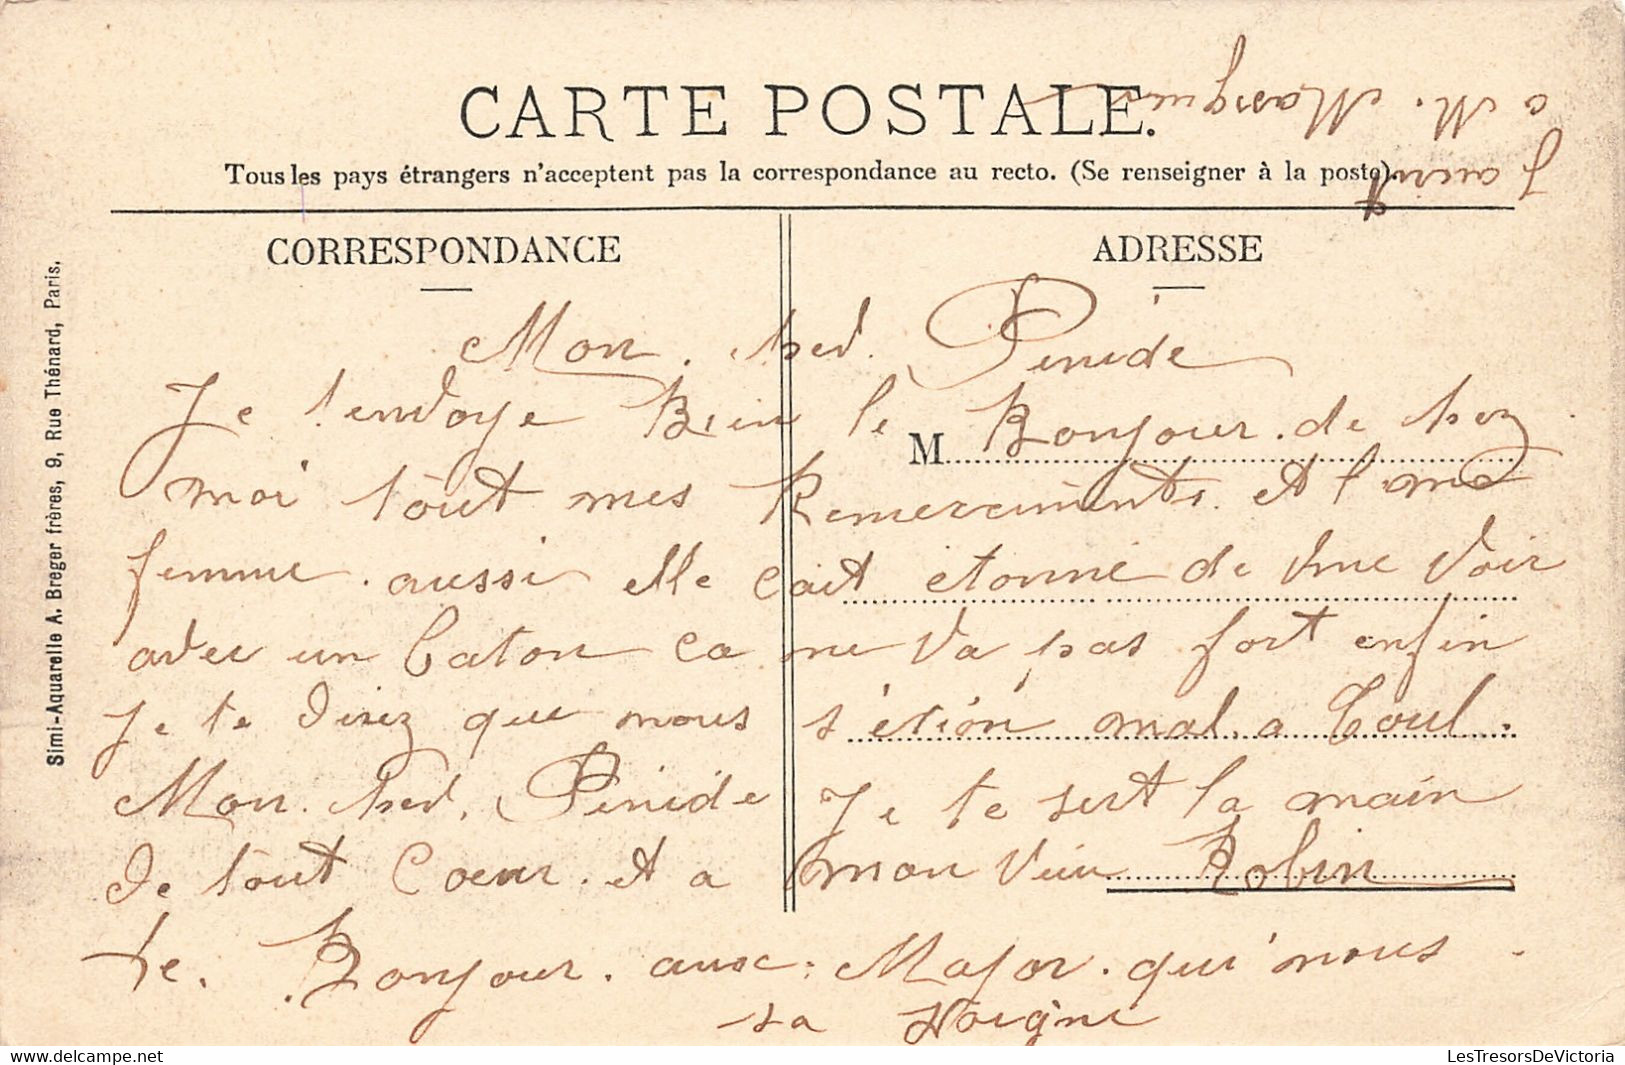 CARTE POSTALE.
Tous les pays étrangers n'acceptent pas la correspondance au recto. (Se renseigner à la poste).
CORRESPONDANCE
ADRESSE
Simi-Aquarelle A. Breger frères, 9, Rue Thénard, Paris.
M
Mon. Penide
Je t'envoye Bien le Bonjour. de
moi tout mes Remerciments. et
femme. aussi elle etonné de Voir
avec un Caton ca ne va pas fort enfin
Je te direz que nous mal. a Toul.
Mon. Penide Je te sert la main
de tout Coeur. et a mon Robin
Le. Bonjour. aux: Major. qui nous
sa
M. Masigues
LesTresorsDeVictoria